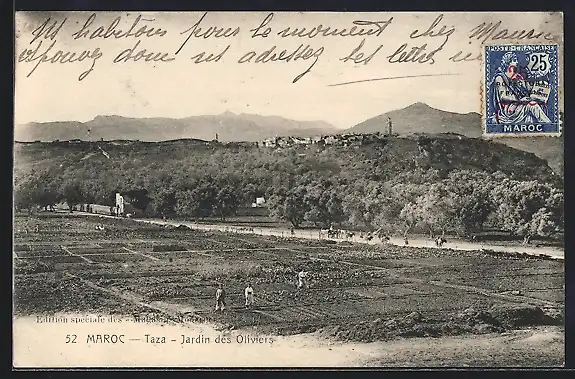 M habitons pour le moment chez Mauric
pouvez donc nous adresser les lettres
POSTE FRANÇAISE
25
MAROC
Edition spéciale des
52 MAROC — Taza - Jardin des Oliviers